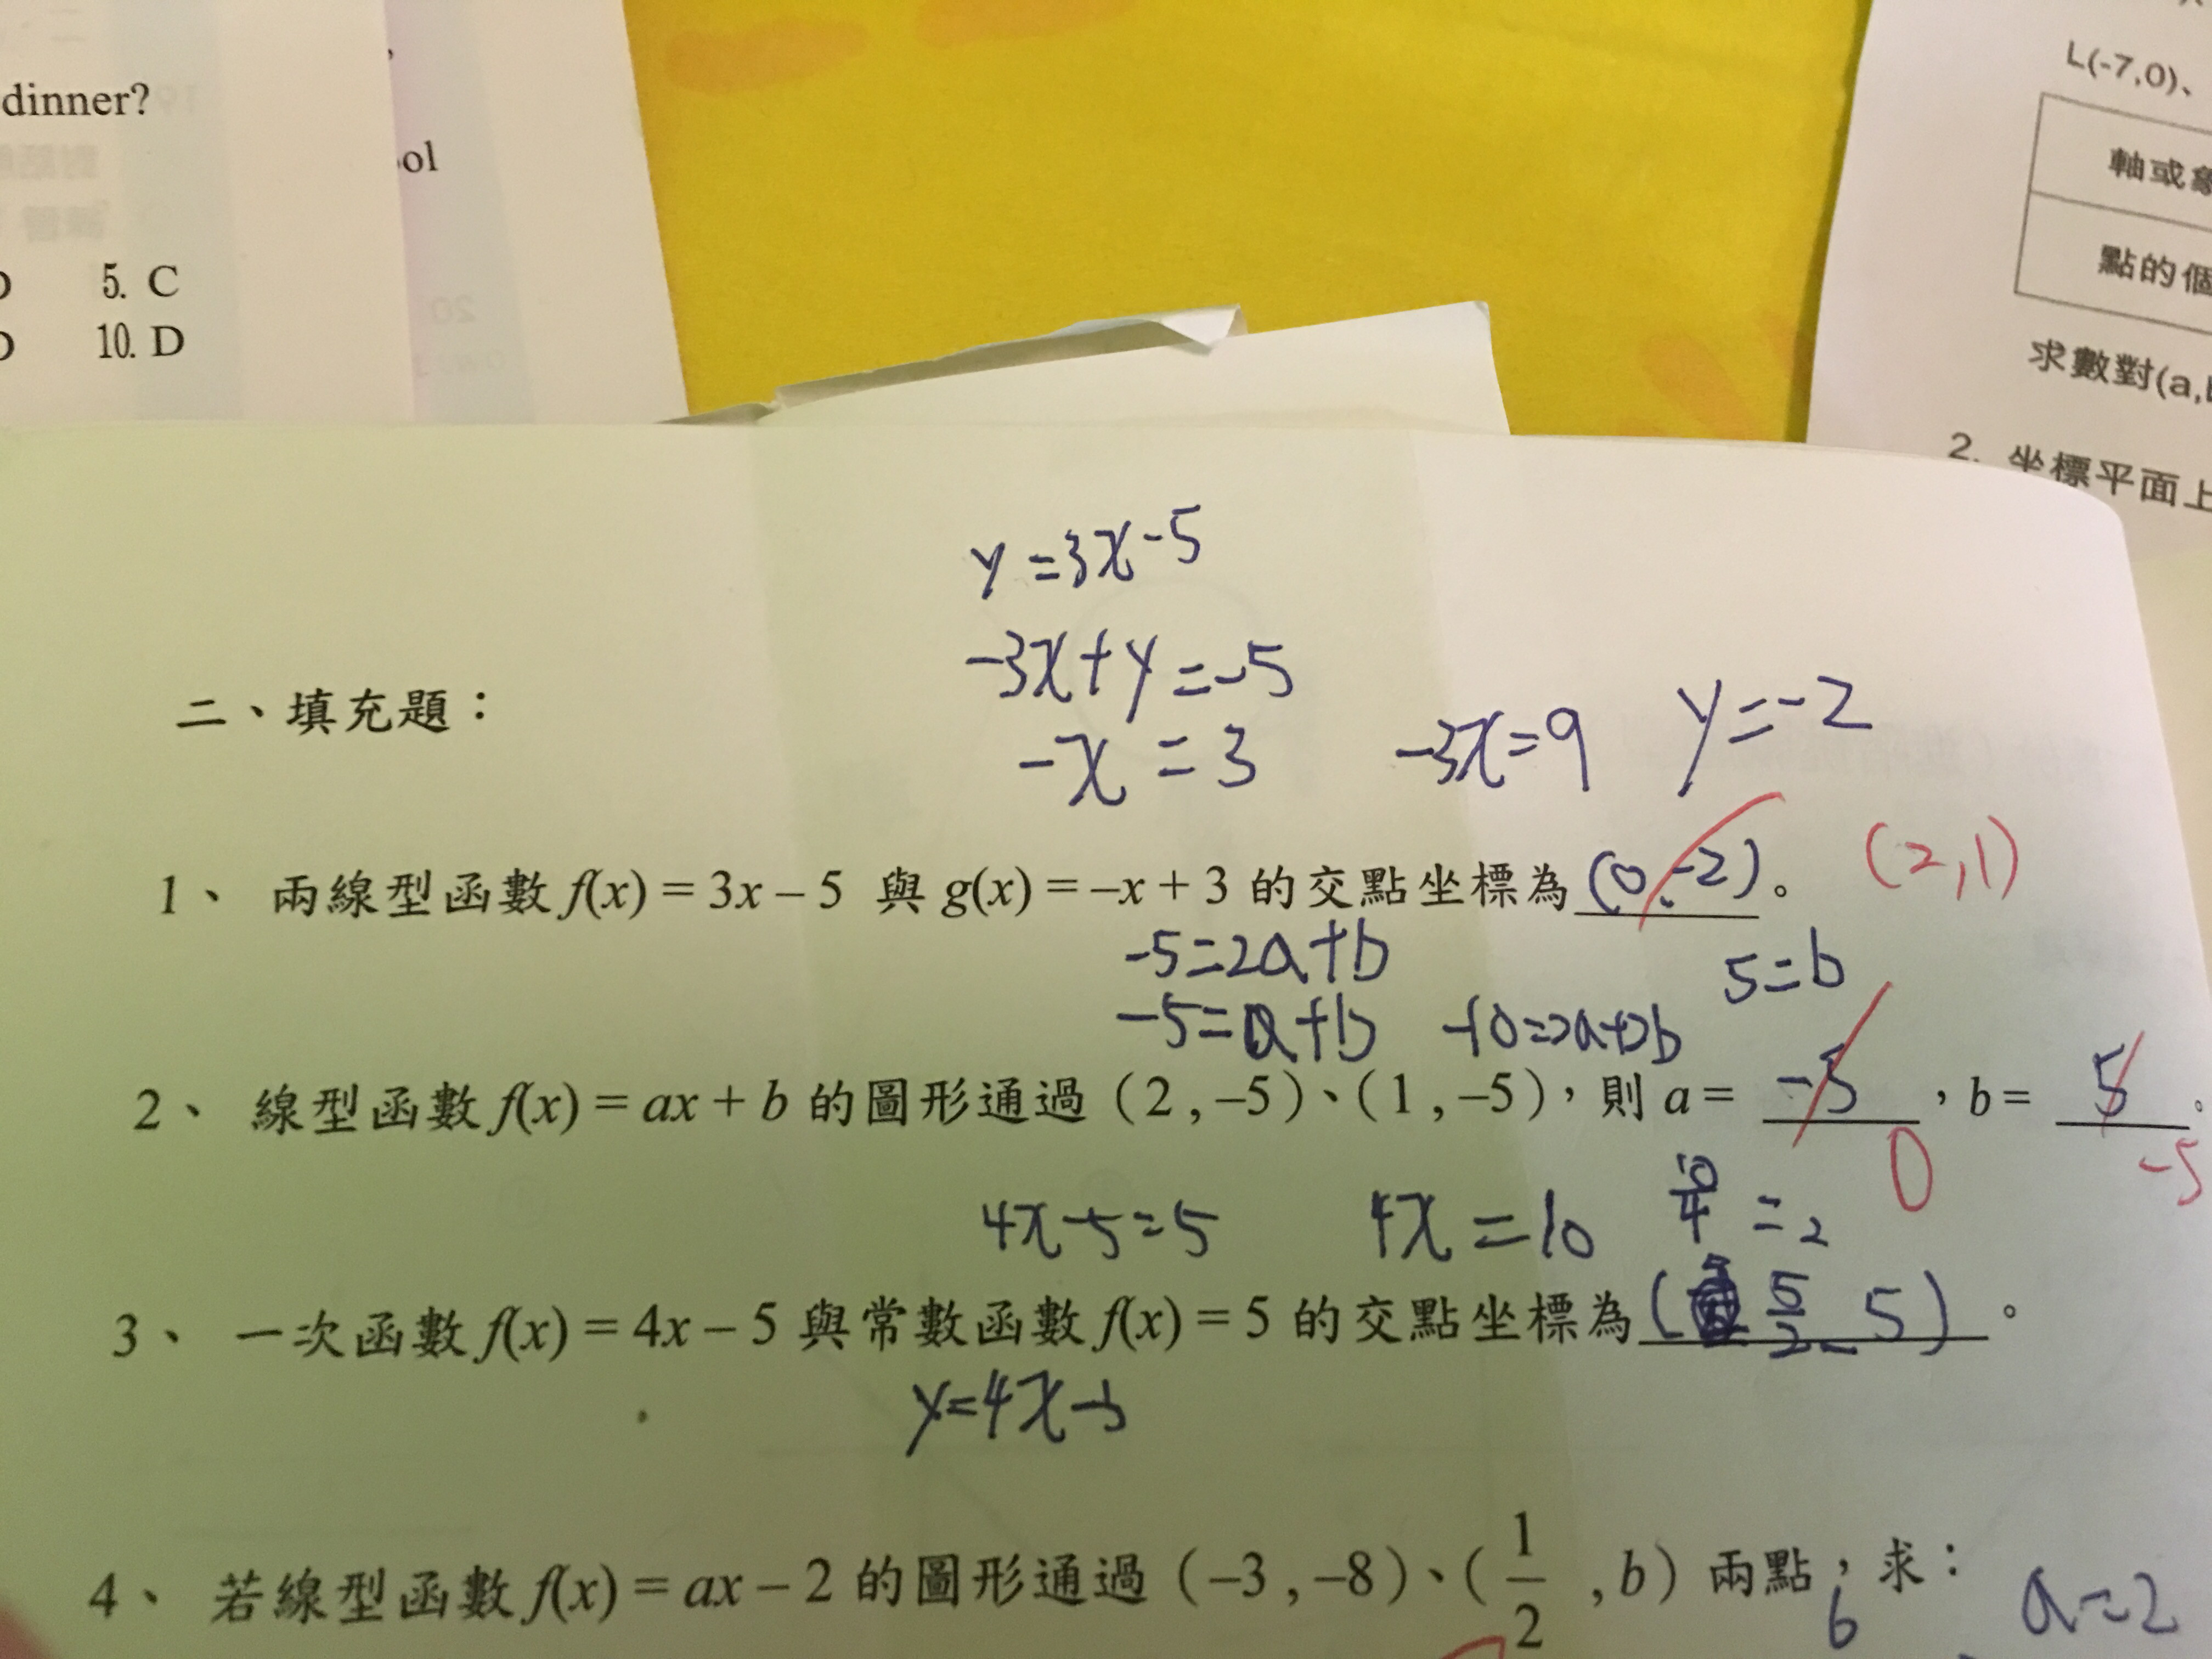 dinner?
ol
5. C
10. D
L(-7,0)、
軸或象
點的個
求數對(a,b
2. 坐標平面上
y=3x-5
-3x+y=-5
二、填充題：
-x=3 -3x=9 y=-2
1、 兩線型函數 f(x) = 3x – 5 與 g(x) = –x + 3 的交點坐標為 (0,-2)。 (2,1)
-5=2a+b 5=b
-5=a+b -10=2a+2b
2、 線型函數 f(x) = ax + b 的圖形通過（2 , –5）、（1 , –5），則 a = -5 ，b = 5 。
0 -5
4x-5=5 4x=10 10/4=2
3、 一次函數 f(x) = 4x – 5 與常數函數 f(x) = 5 的交點坐標為 ( 5/2 5) 。
y=4x-5
4、 若線型函數 f(x) = ax – 2 的圖形通過（–3 , –8）、（1/2 , b）兩點，求： a=2
6